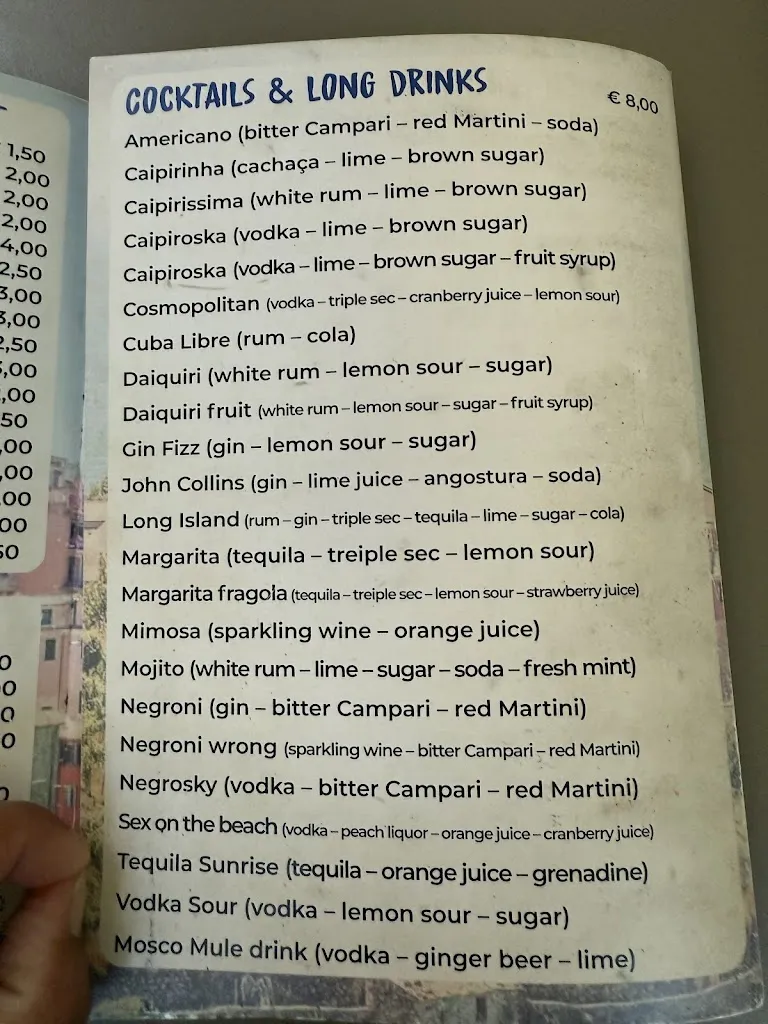 1,50
2,00
2,00
2,00
4,00
2,50
3,00
3,00
2,50
,00
,00
50
,00
,00
,00
00
50
0
00
0
0
COCKTAILS & LONG DRINKS
€ 8,00
Americano (bitter Campari – red Martini – soda)
Caipirinha (cachaça – lime – brown sugar)
Caipirissima (white rum – lime – brown sugar)
Caipiroska (vodka – lime – brown sugar)
Caipiroska (vodka – lime – brown sugar – fruit syrup)
Cosmopolitan (vodka – triple sec – cranberry juice – lemon sour)
Cuba Libre (rum – cola)
Daiquiri (white rum – lemon sour – sugar)
Daiquiri fruit (white rum – lemon sour – sugar – fruit syrup)
Gin Fizz (gin – lemon sour – sugar)
John Collins (gin – lime juice – angostura – soda)
Long Island (rum – gin – triple sec – tequila – lime – sugar – cola)
Margarita (tequila – treiple sec – lemon sour)
Margarita fragola (tequila – treiple sec – lemon sour – strawberry juice)
Mimosa (sparkling wine – orange juice)
Mojito (white rum – lime – sugar – soda – fresh mint)
Negroni (gin – bitter Campari – red Martini)
Negroni wrong (sparkling wine – bitter Campari – red Martini)
Negrosky (vodka – bitter Campari – red Martini)
Sex on the beach (vodka – peach liquor – orange juice – cranberry juice)
Tequila Sunrise (tequila – orange juice – grenadine)
Vodka Sour (vodka – lemon sour – sugar)
Mosco Mule drink (vodka – ginger beer – lime)